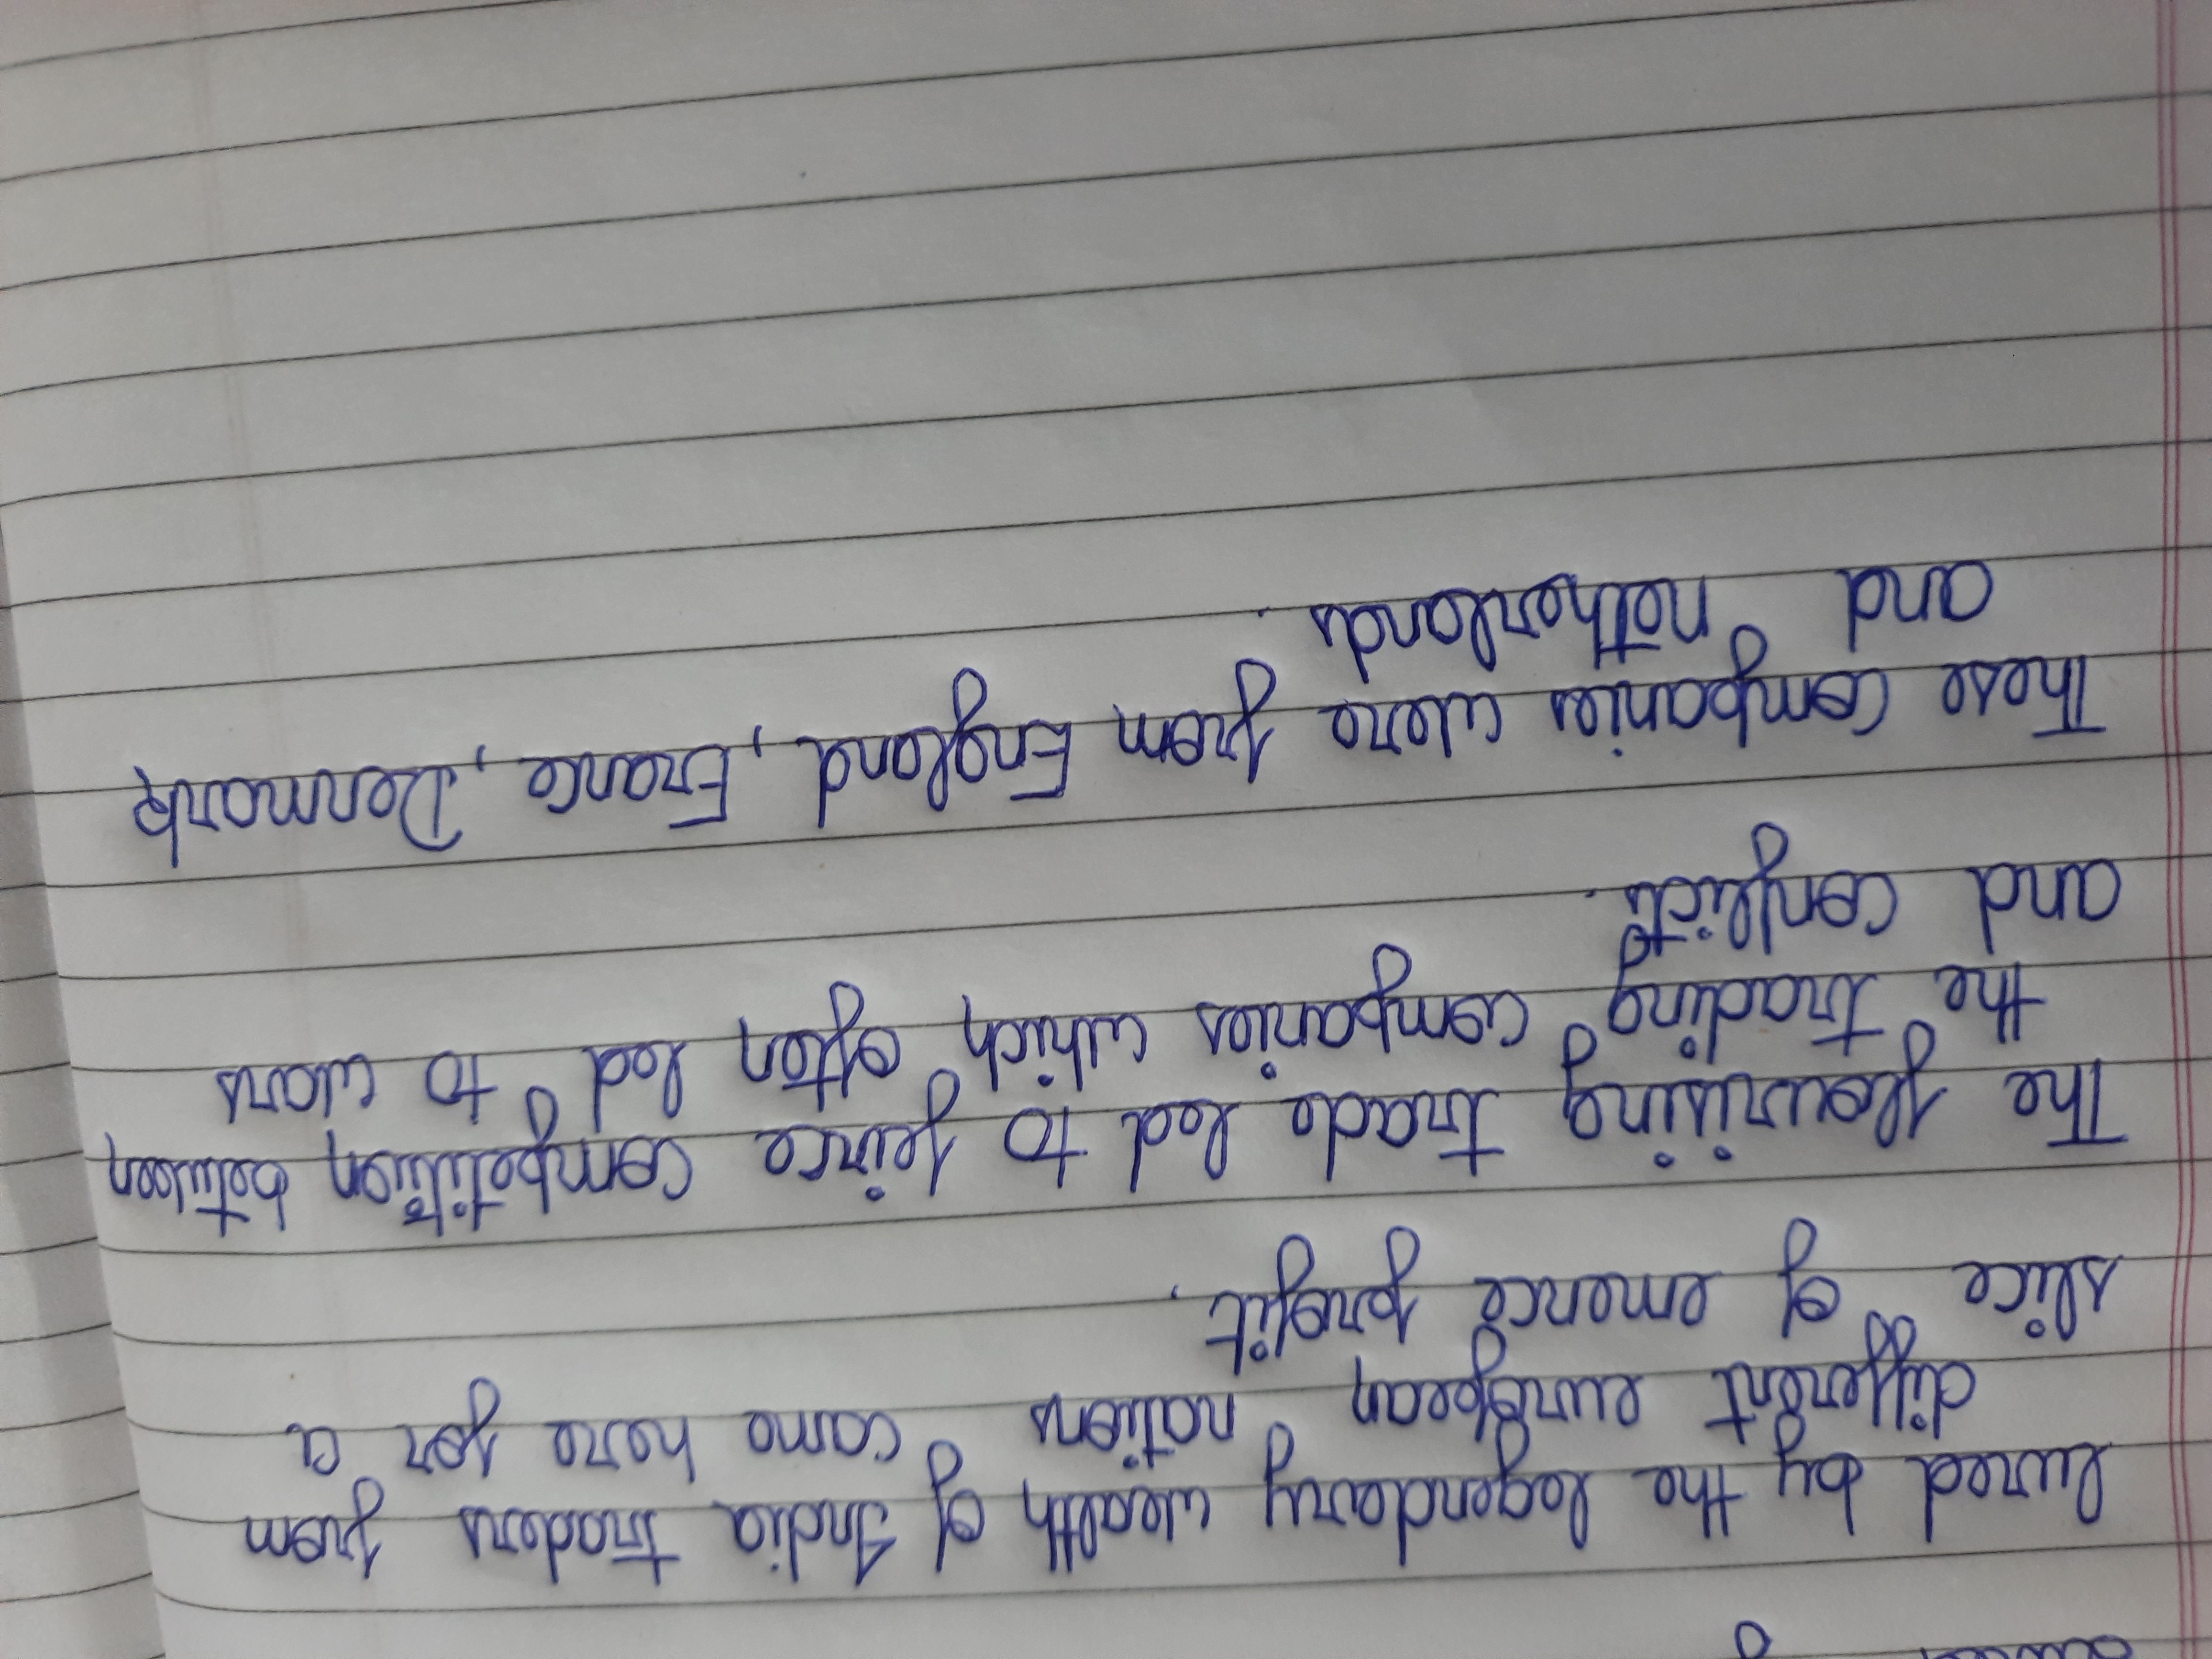 lured by the legendary wealth of India traders from
different european nations came here for a
slice of emence profit.
The flourising trade led to feirce competition between
the trading companies which often led to wars
and conflicts.
These companies were from England, France, Denmark
and netherlands.